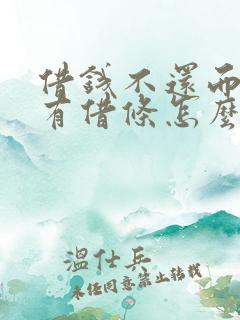 借钱不還而
有借條怎麼
溫仕兵
未经同意禁止转载